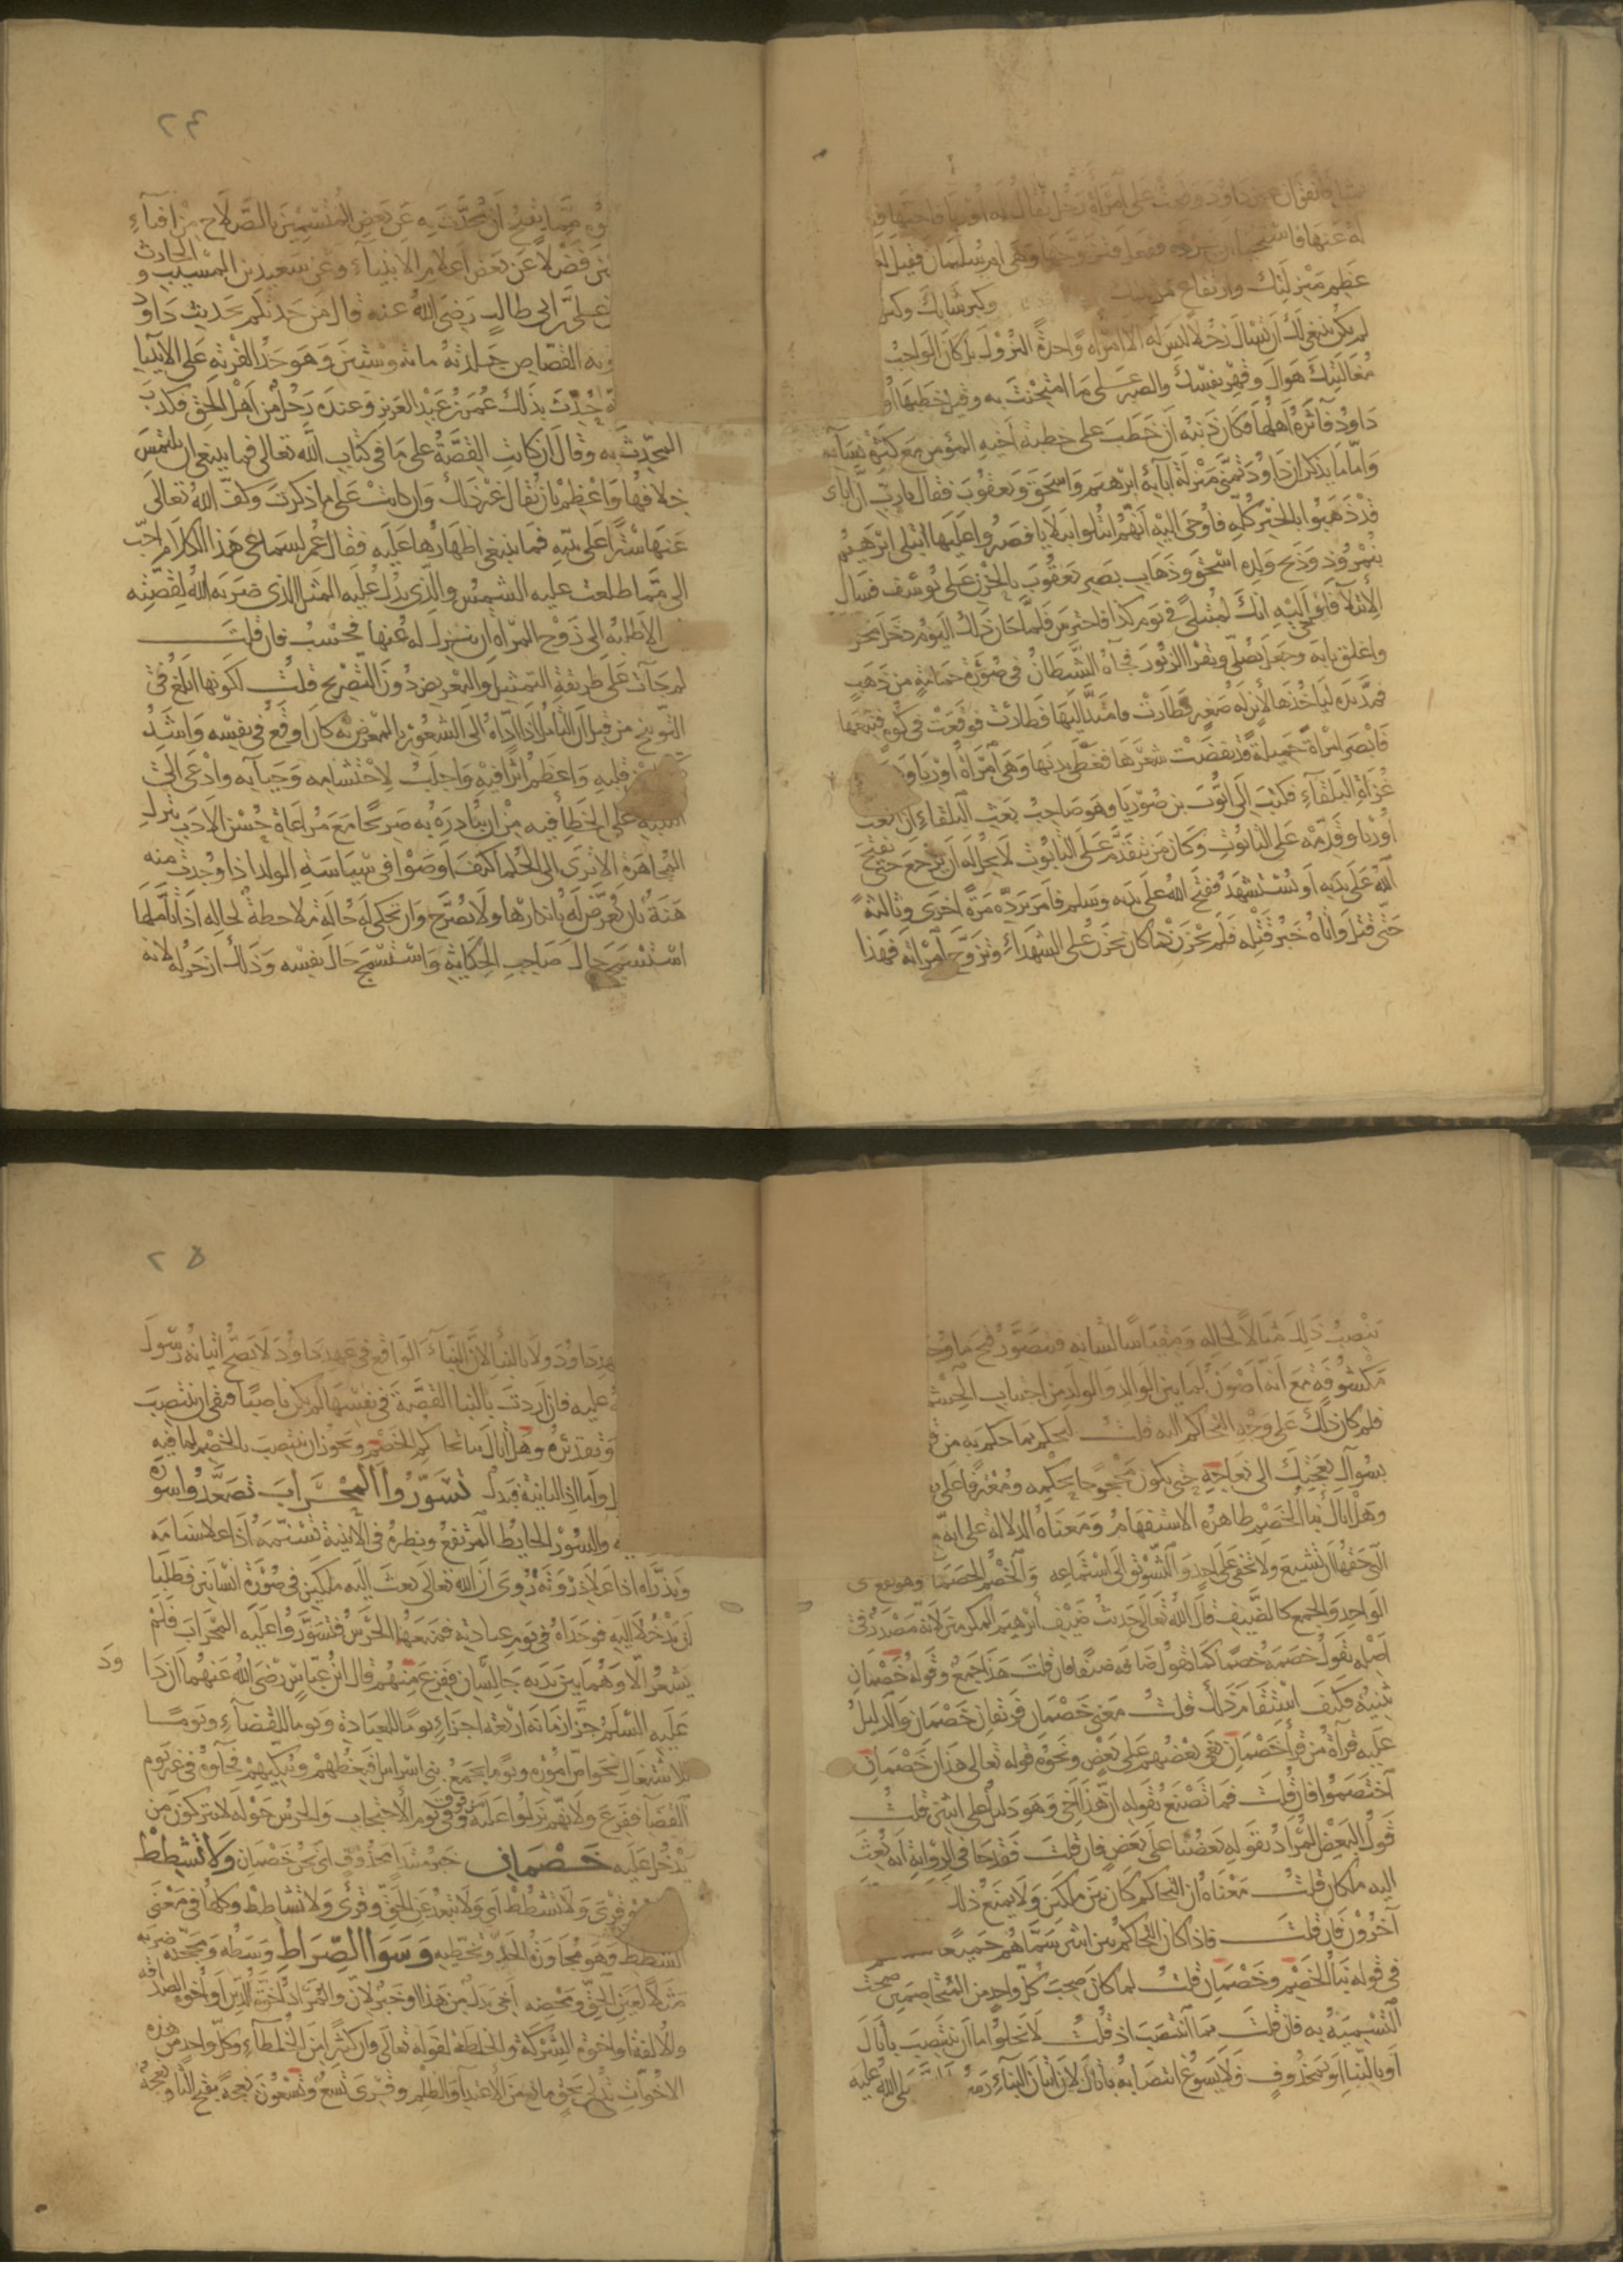 فاتفق ان عين داود وقعت على امرأة رجل يقال له اوريا فاحبها
له عنها فاستحيا ان يرده ففعل فتزوجها وهى ام سليمان فقيل له
عظم منزلتك وارتفاع وكبر شأنك وكثر
لم يكن ينبغى لك ان تسأل رجلا ليس له الا امرأة واحدة النزول بل كان الواجب
مغالبتك هواك وقهر نفسك والصبر على ما امتحنت به وقيل خطبها او
داود فآثره اهلها فكان ذنبه ان خطب على خطبة اخيه المؤمن مع كثرة نسائه
واما ما يذكر ان داود تمنى منزلة آبائه ابرهيم واسحق ويعقوب فقال يا رب ان آبائى
قد ذهبوا بالخير كله فاوحى اليه انهم ابتلوا ببلايا فصبروا عليها ابتلى ابرهيم
بنمروذ وذبح ولده اسحق وذهاب بصر يعقوب بالحزن على يوسف فسأل
الابتلآ فاوحى اليه انك لمبتلى فى يوم كذا فاحترس فلما حان ذلك اليوم دخل محر
واغلق بابه وجعل يصلى ويقرا الزبور فجآه الشيطان فى صورة حمامة من ذهب
فمد يده ليأخذها لابن له صغير فطارت فامتد اليها فطارت فوقعت فى كوة فتبعها
فابصر امرأة جميلة قد نقضت شعرها فغطى بدنها وهى امرأة اوريا
غزاة البلقآء فكتب الى ايوب بن صوريا وهو صاحب بعث البلقاء ان ابعث
اوريا وقدمه على التابوت وكان من يتقدم على التابوت لا يحل له ان يرجع حتى يفتح
الله على يديه او يستشهد ففتح الله على يديه وسلم فامر برده مرة اخرى وثالثة
حتى قتل واتاه خبر قتله فلم يحزن كما كان يحزن على الشهدآء وتزوج امرأته فهذا
٢٤
مما يقبح ان يحدث به عن بعض المتسمين بالصلاح من افنآء
فضلا عن بعض اعلام الانبيآء وعن سعيد بن المسيب والحارث
على بن ابى طالب رضى الله عنه قال من حدثكم بحديث داود
يه القصاص جلدته مائة وستين وهو حد الفرية على الانبيا
حدث بذلك عمر بن عبد العزيز وعنده رجل من اهل الحق فكذب
المحدث به وقال ان كانت القصة على ما فى كتاب الله تعالى فما ينبغى ان يلتمس
خلافها واعظم بان يقال غير ذلك وان كانت على ما ذكرت وكف الله تعالى
عنها سترا على نبيه فما ينبغى اظهارها عليه فقال عمر لسماعى هذا الكلام احب
الى مما طلعت عليه الشمس والذى يدل عليه المثل الذى ضربه الله لقصته
الا طلبه الى زوج المرأة ان ينزل له عنها فحسب فان قلت
لم جآءت على طريقة التمثيل والتعريض دون التصريح قلت لكونها ابلغ فى
التوبيخ من قبل ان التأمل اذا اداه الى الشعور بالمعرض به كان اوقع فى نفسه واشد
قلبه واعظم اثرا فيه واجلب لاحتشامه وحيآيه وادعى الى
التنبه على الخطأ فيه من ان يبادره به صريحا مع مراعاة حسن الادب بترك
المجاهرة الا ترى الى الحكما كيف اوصوا فى سياسة الولد اذا وجدت منه
هنة بان يعرض له بانكارها ولا يصرح وان تحكى له حالة ملاحظة لحاله اذا تأملها
استسمج حال صاحب الحكاية واستسمج حال نفسه وذلك ازجر له لانه
ينصب ذلك مثالا لحاله ومقياسا لشانه فيتصور قبح ما وجد
مكشوفة مع انه اصون لما بين الوالد والولد من حجاب الحشم
فلم كان ذلك على وجه التحاكم اليه قلت ليحكم بما حكم به من
بسؤال نعجتك الى نعاجه حتى يكون محجوجا بحكمه ومعترفا على
وهل اتاك نبأ الخصم ظاهره الاستفهام ومعناه الدلالة على انه
التى حقها ان تشيع ولا تخفى على احد والتشويق الى استماعه والخصم الخصما وهو يقع
الواحد والجمع كالضيف قال الله تعالى حديث ضيف ابرهيم المكرمين لانه مصدر فى
اصله تقول خصمه خصما كما تقول ضافه ضيفا فان قلت هذا جمع وقوله خصمان
تثنية فكيف استقام ذلك قلت معنى خصمان فريقان خصمان والدليل
عليه قرآة من قرأ خصمان بغى بعضهم على بعض ونحوه قوله تعالى هذان خصمان
اختصموا فان قلت فما تصنع بقوله ان هذا اخى وهو دليل على اثنين قلت
قول البعض المراد بقوله بعضنا على بعض فان قلت فقد جا فى الرواية انه بعث
اليه ملكان قلت معناه ان التحاكم كان بين ملكين ولا يمنع ذلك
آخرون فان قلت فاذا كان التحاكم بين اثنين سماهم جميعا
فى قوله نبأ الخصم وخصمان قلت لما كان صحب كل واحد من المتخاصمين صحت
التسمية به فان قلت بما انتصب اذ قلت لا يخلو اما ان ينتصب باتاك
او بالنبا او بمحذوف ولا يسوغ انتصابه باتاك لان اتيان النبآء رسول الله صلى الله عليه
٢٥
داود ولا بالنبأ لان النبآء الواقع فى عهد داود لا يصح اتيانه رسول
عليه فان اردت بالنبا القصة فى نفسها لم يكن ناصبا فبقى ان ينتصب
وتقديره وهل اتاك نبا تحاكم الخصم ويجوز ان ينتصب بالخصم لما فيه
واما اذ الثانية فبدل تسوروا المحراب تصعدوا سوره
والسور الحايط المرتفع ونظيره فى الابنية تسنمه اذا علا سنامه
وتذراه اذا علا ذروته روى ان الله تعالى بعث اليه ملكين فى صورة انسانين فطلبا
ان يدخلا اليه فوجداه فى يوم عبادته فمنعهما الحرس فتسوروا عليه المحراب فلم
يشعر الا وهما بين يديه جالسان ففزع منهم قال ابن عباس رضى الله عنهما ان دا
ود
عليه السلم جزأ زمانه اربعة اجزاء يوما للعبادة ويوما للقضآء ويوما
للاشتغال بخواص اموره ويوما يجمع بنى اسرايل فيعظهم ويبكيهم فجآوه فى غير يوم
القضآ ففزع ولانهم نزلوا عليه من فوق وفى يوم الاحتجاب والحرس حوله لا يتركون من
يدخل عليه خصمان خبر مبتدا محذوف اى نحن خصمان ولا تشطط
وقرى ولا تشطط اى ولا تبعد عن الحق وقرى ولا تشاطط وكلها فى معنى
الشطط وهو مجاوزة الحد وتخطيه وسوا الصراط وسطه ومحجته ضربه
مثلا لعين الحق ومحضه اخى بدل من هذا او خبر لان والمراد اخوة الدين او اخوة الصداقة
والالفة او اخوة الشركة والخلطة لقوله تعالى وان كثيرا من الخلطآء وكل واحد من هذه
الاخوات تدلى بحق مانع من الاعتدآ والظلم وقرى تسع وتسعون نعجة بفتح التا ونعجة